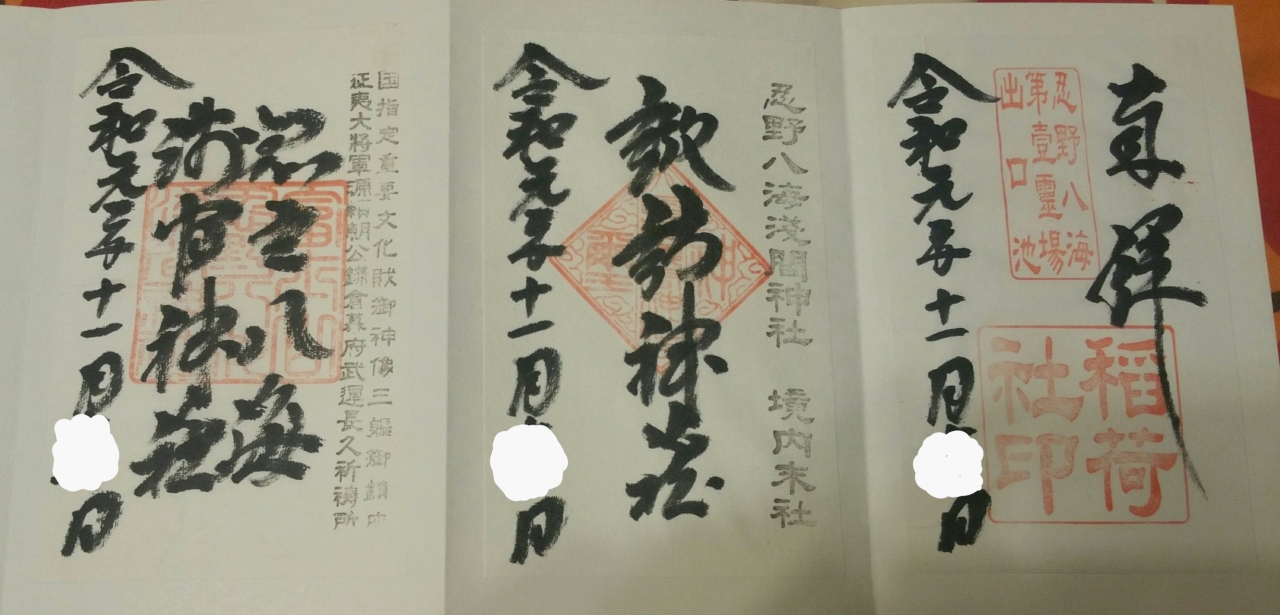 奉拝
忍野八海
第壹靈場
出口池
稲荷
社印
令和元年十一月 日
忍野八海淺間神社 境内末社
神社
令和元年十一月 日
国指定重要文化財御神像三躯御鎮
征夷大将軍源頼朝公鎌倉幕府武運長久祈禱所
八海
浅間神社
令和元年十一月 日